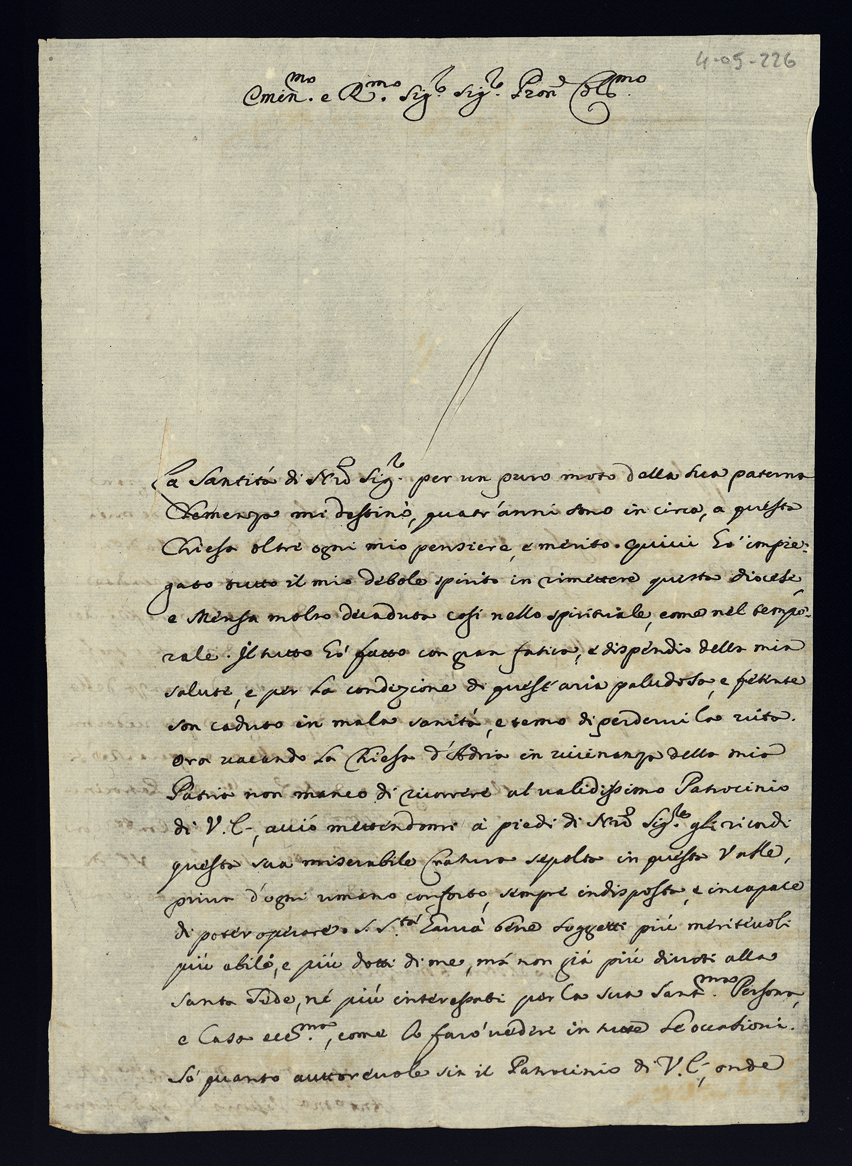 4-05-226
Emin.mo e R.mo Sig.r Sig.r Pron Col.mo
La Santità di Nrō Sig.r per un puro moto della sua paterna
Clemenza mi destinò, quatr'anni sono in circa, a questa
Chiesa oltre ogni mio pensiere, e merito. Quivi hò impie-
gato tutto il mio debole spirito in rimettere questa diocese,
e Mensa molto decaduta così nello spirituale, come nel tempo-
rale. Il tutto hò fatto con gran fatica, e dispendio della mia
salute, e per la condizione di quest'aria paludosa, e fetente
son caduto in mala sanità, e temo di perdervi la vita.
Ora vacando la Chiesa d'Adria in vicinanza della mia
Patria non manco di ricorrere al validissimo Patrocinio
di V.E., acciò mettendomi à piedi di Nrō Sig.re gli ricordi
questa sua miserabile Creatura sepolta in questa Valle,
priva d'ogni umano conforto, sempre indisposta, e incapace
di poter operare. S. S.tà haverà bene soggetti più meritevoli
più abili, e più dotti di me, mà non già più divoti alla
Santa Sede, né più interessati per la sua Sant.ma Persona,
e Casa ecc.ma, come lo farò vedere in tutte le occasioni.
Sò quanto auttorevole sia il Patrocinio di V.E., onde